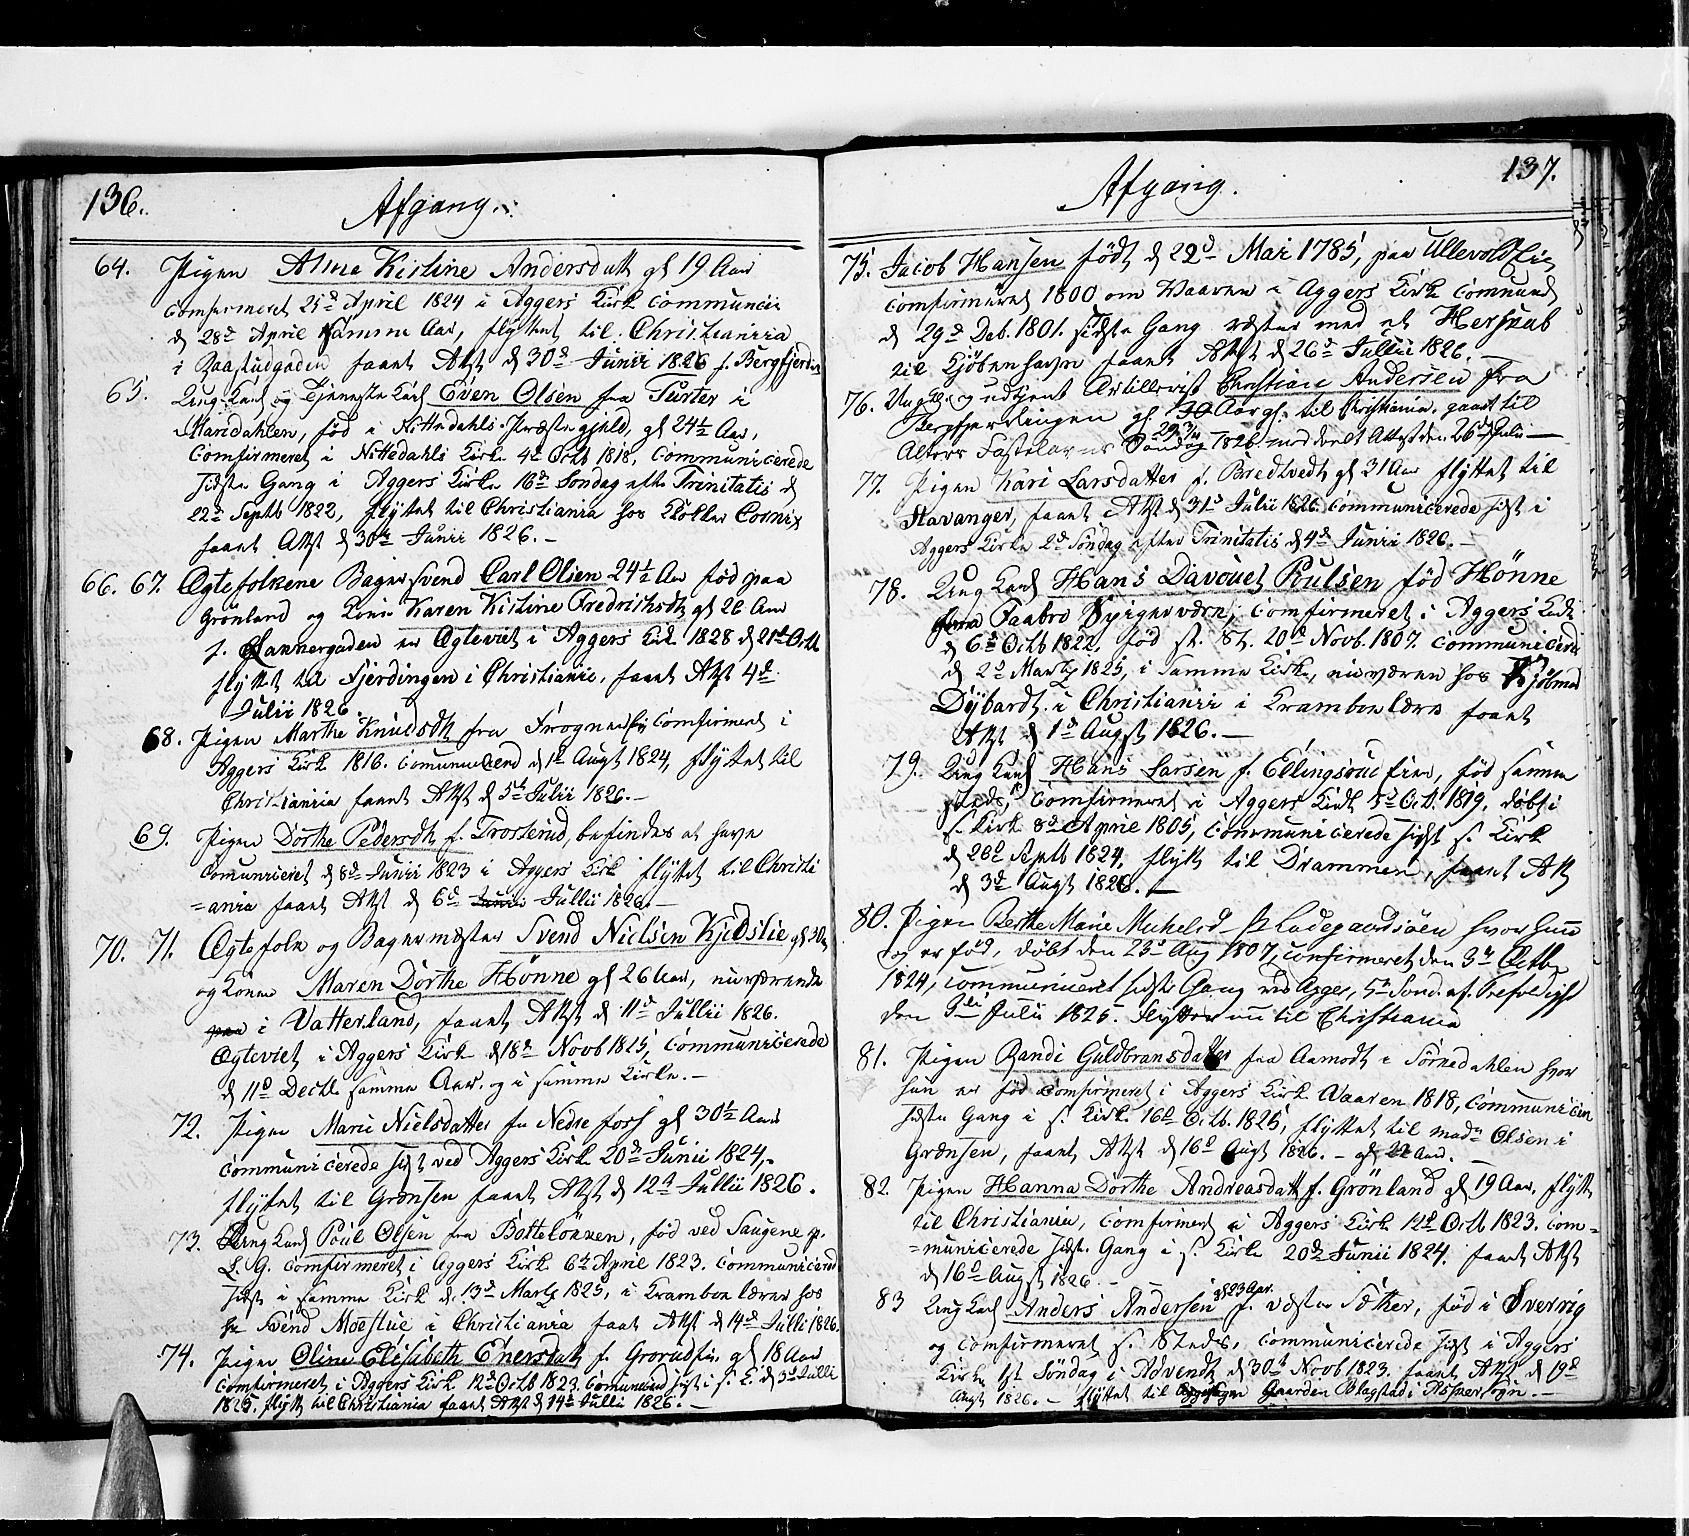 136.
Afgang.
64. Pigen Anne Kistine Andersdatt gl 19 Aar
Comfirmeret 25d April 1824 i Aggers Kirk communcii
d 28d April samme Aar, flyttet til Christiania
i Raastudgaden faaet Attst d 30d Junii 1826 f. Bergfjerdin
65. Ung Karl og Tjeneste Karl Even Olsen fra Turter i
Maridahlen, fød i Nittedahls Præstegjeld, gl 24½ Aar,
Comfirmeret i Nittedahls Kirke 4d Octb 1818, Communicerede
sidste Gang i Aggers Kirke 16d Søndag efter Trinitatis d
22d Septb 1822, flyttet til Christiania hos
faaet Attst d 30d Junii 1826. –
66. 67. Ægtefolkene Bagersvend Carl Olsen 24½ Aar fød paa
Grønland og Kone Karen Kistine Fredrichsdt gl 26 Aar
f. Lannergaden er Ægteviet i Aggers Kirk 1828 d 21d Octb
flyttet til Fjerdingen i Christiania, faaet Attst 4d
Julii 1826.
68. Pigen Marthe Knudsdt fra Frogner Comfirmeret i
Aggers Kirk 1816. Comunicerend d 1d Augt 1824, flyttet til
Christiania faaet Attst d 5t Julii 1826. –
69. Pigen Dorthe Pedersdt f. Trosterud, befindes at have
Comuniceret d 8d Junii 1823 i Aggers Kirk flyttet til Christi
=ania faaet Attst d 6d Junii Jullii 1826. –
70. 71. Ægtefolk og Bagermester Svend Nielsen Kjedslie gl 30
og Kone Maren Dorthe Hønne gl 26 Aar, nuværende
paa i Vatterland, faaet Attst d 11d Jullii 1826.
Ægteviet i Aggers Kirk d 18d Novb 1825, Communicerede
d 11d Decbr samme Aar. og i samme Kirke. –
72. Pigen Marie Nielsdatter fra Nedre foss gl 30½ Aar
Communicerede sidst ved Aggers Kirk 20d Junii 1824,
flyttet til Grønsen faaet Attst d 12d Jullii 1826.
73. Ung Karl Poul Olsen fra Botteløkken, fød ved Saugene p.
L. G. Comfirmeret i Aggers Kirk 6t April 1823. Communicered
sidst i samme Kirk d. 13d Marts 1825, i Kramboe lærer hos
hr Svend Moestue i Christiania faaet Attst d 14d Julli 1826.
74. Pigen Oline Elisabeth Enersdatt f. Grorud fin, gl 18 Aar
Comfirmeret i Aggers Kirk 12d Octb 1823. Comunicered sidst i s. K. d 3d Julli
1825. flyttet til Christiania faaet Attst d 14d Julli 1826. –
137.
Afgang.
75. Jacob Hansen født d 22d Mai 1785, paa Ullevold Ein
Comfirmeret 1800 om Vaaren i Aggers Kirk Comuned
d 29d Deb. 1801. sidste Gang reiser med et Herskab
til Kjøbenhavn faaet Attst d 26d Jullii 1826. –
76. Ungk. og udtjent Artillerist Christian Andersen fra
Bergfjerdingen gl 30 29 3/4 Aar gl. til Christiania. gaaet til
Alters Fastelavns Søndag 1826. meddeelt Attest den 26d Julii –
77. Pigen Kari Larsdatter f. Bredtvedt gl 31 Aar flyttet til
Stavanger, faaet Attst d 31d Julii 1826. Communicerede sidst i
Aggers Kirke 2d Søndag efter Trinitatis d 4d Junii 1826. –
78. Ung Karl Hans Davouet Poulsen fød Hønne
Faabro Comfirmeret i Aggers Kirk
d 6d Octb 1822, fød s. St. 20d Novb. 1807. Communicered
d 2d Marts 1825, i samme Kirk, nuværen hos Kjøbmd
Dybardt i Christiania i Kramboe lære faaet
Attst d 1d Augst 1826. –
79. Ung Karl Hans Larsen f. Ellingsrud fin, fød samme
steds, Comfirmeret i Aggers Kirk 3d Oct. 1819. døbt i
s. Kirk 8d April 1805, Communicerede sidst s. Kirk
d 26d Septb 1824, flytt til Drammen, faaet Attst
d 3d Augt 1826. –
80. Pigen Berthe Marie Michelsd fr Ladegaardsøen hvor hun
og er fød, døbt den 23d Aug 1807, confirmeret den 3d Octb
1824, communiceret sidste Gang ved Agger, 5te Sønd. ef. Trefoldighd
den 3die Julii 1825. flytter nu til Christiania
81. Pigen Randi Guldbransdatter fra Aamodt i Sørkedahlen hvor
hun er fød Comfirmeret i Aggers Kirk Vaaren 1818, Communicer
sidste Gang i s. Kirk. 16d Octb. 1825, flyttet til madn Olsen i
Grønsen, faaet Attst d 16d Augt 1826. – gl 22 Aar.
82. Pigen Hanna Dorthe Andreasdatt f. Grønland gl 19 Aar, flytt
til Christiania, Comfirmeret i Aggers Kirk 12d Octb 1823. Com=
=municerede sidst. Gang i s. Kirke 20de Junii 1824. faaet Attst
d 16d Augst 1826. –
83 Ung Karl Anders Andersen gl 23 Aar f. væstre Sæther, fød i Sverrig
og Comfirmeret s. Steds, Communicerede sidst i Aggers
Kirke 1st Søndag i Advendt d 30d Novb 1823. faaet Attst d 19d
Augt 1826. – flyttet til Gaarden Blagstad i Askersogn. –